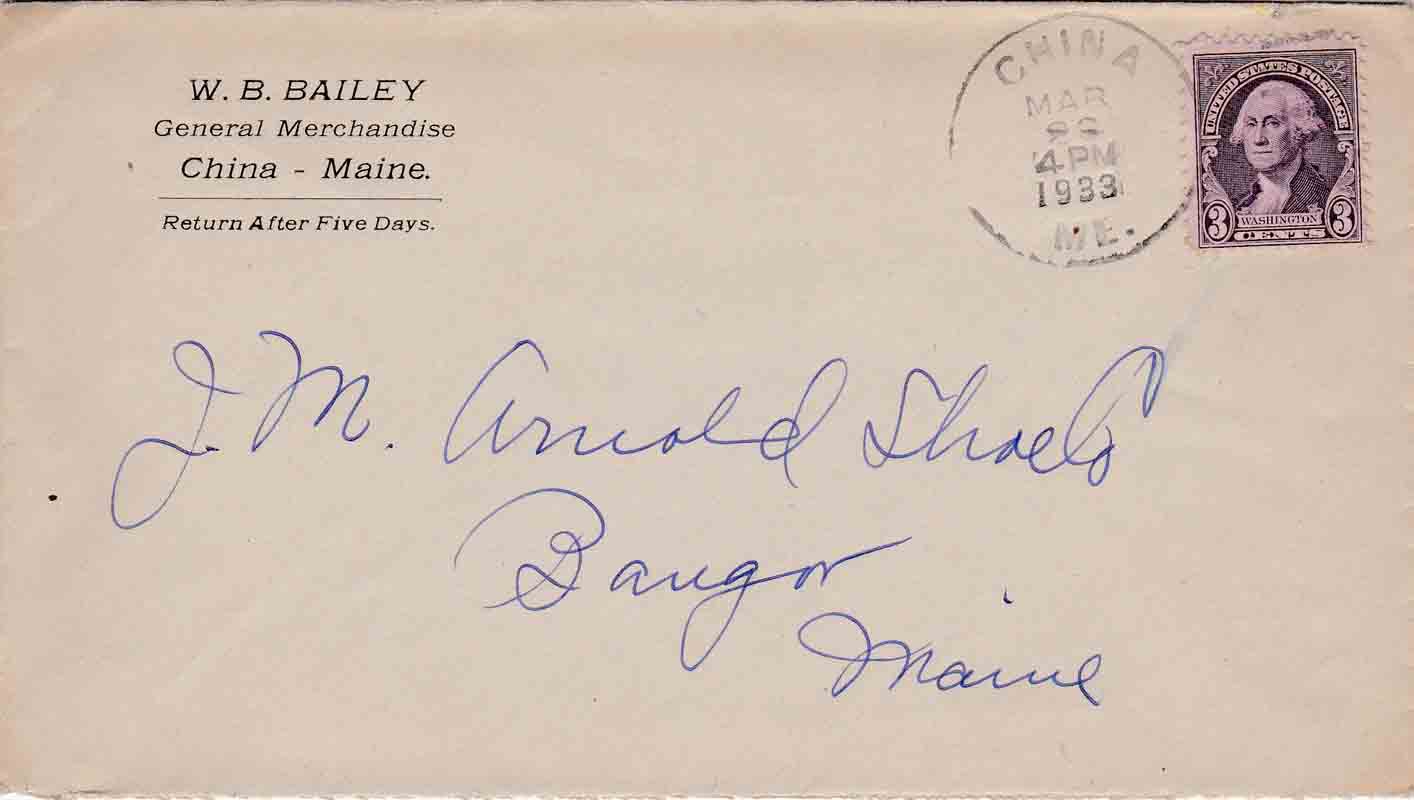 W. B. BAILEY
General Merchandise
China - Maine.
Return After Five Days.
CHINA
MAR
4 PM
1933
ME.
UNITED STATES POSTAGE
3 WASHINGTON 3
CENTS
J. M. Arnold Shoe Co
Bangor
Maine